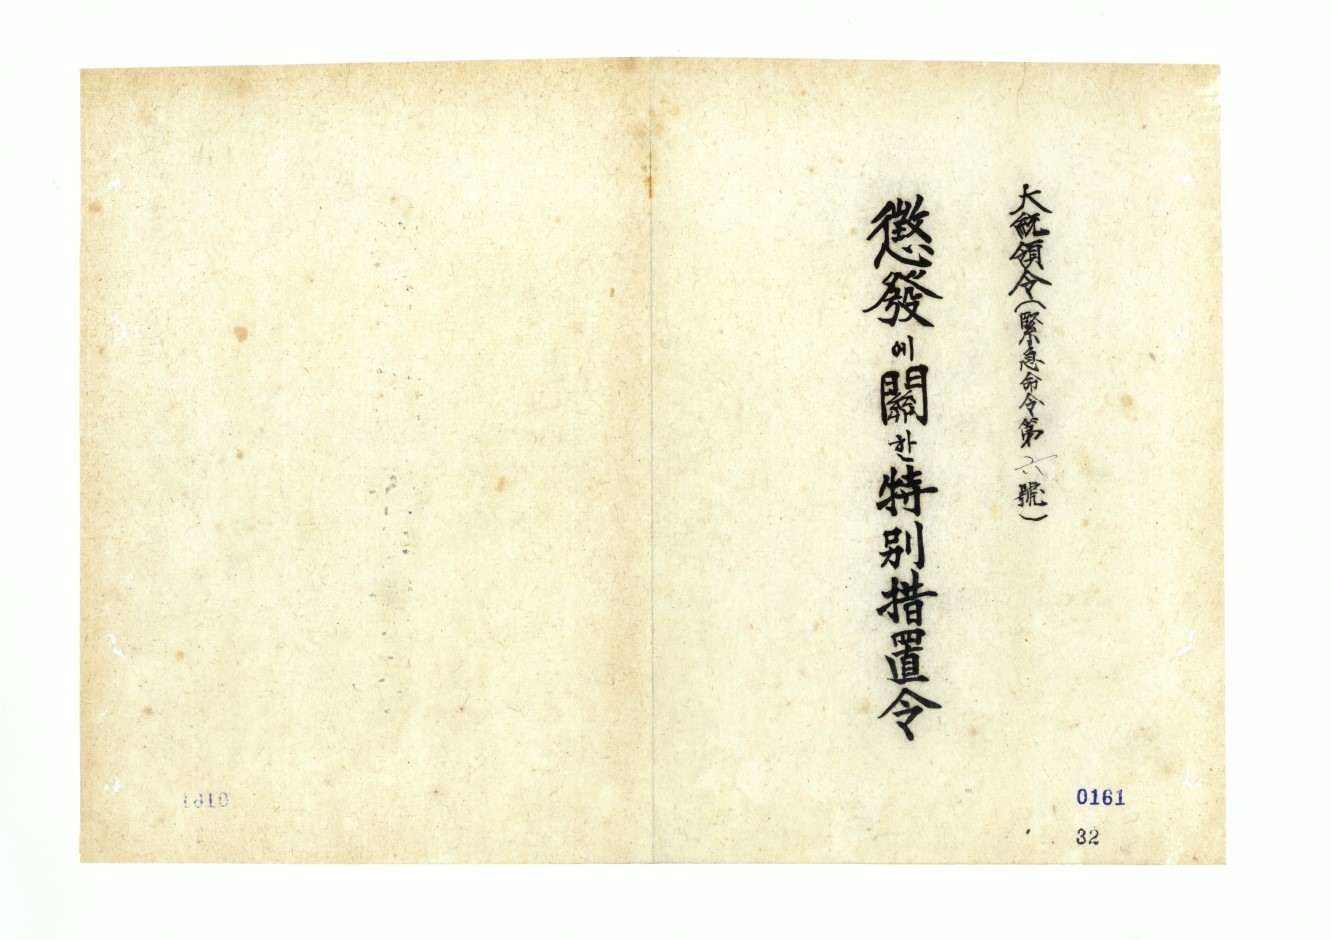 大統領令(緊急命令第六號)
懲發에關한特別措置令
0161
32